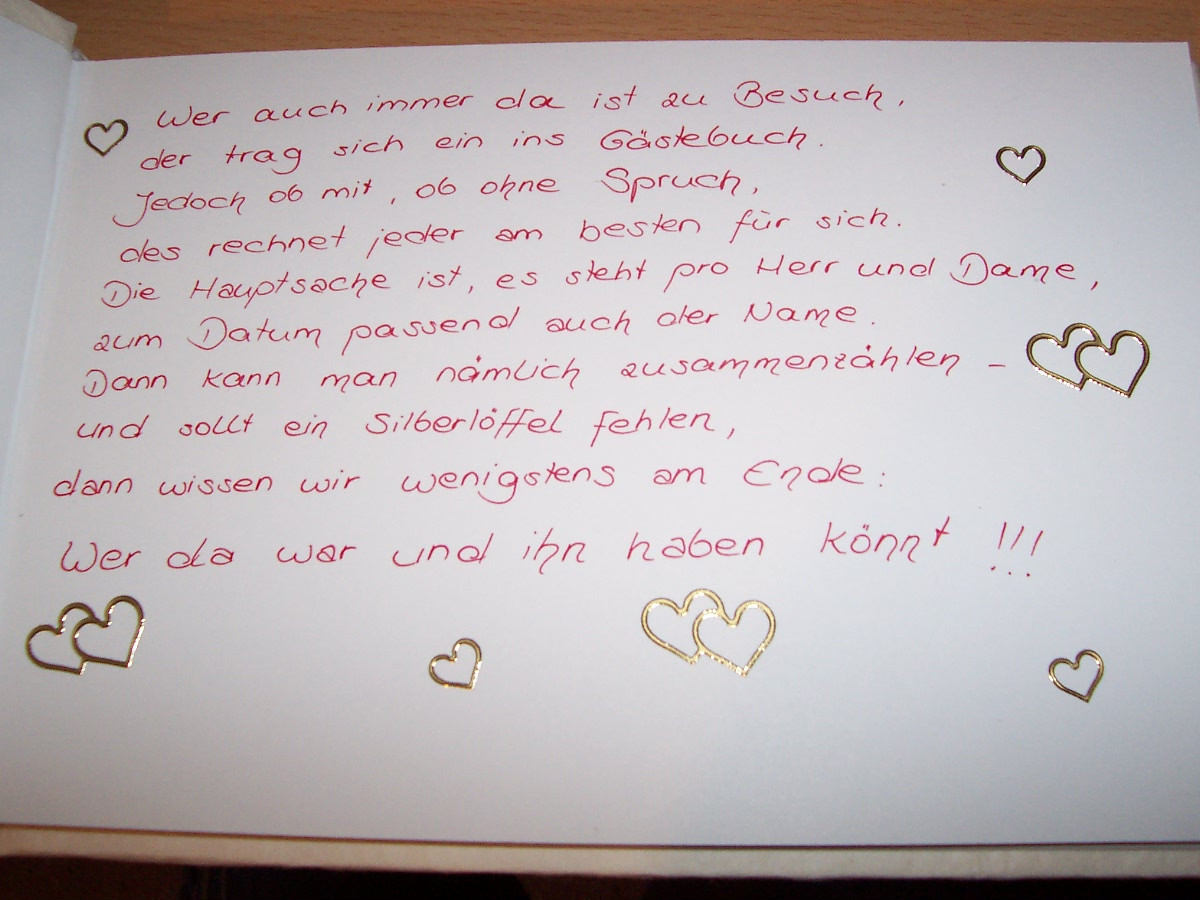 Wer auch immer da ist zu Besuch,
der trag sich ein ins Gästebuch.
Jedoch ob mit, ob ohne Spruch,
des rechnet jeder am besten für sich.
Die Hauptsache ist, es steht pro Herr und Dame,
zum Datum passend auch der Name.
Dann kann man nämlich zusammenzählen –
und sollt ein Silberlöffel fehlen,
dann wissen wir wenigstens am Ende:
Wer da war und ihn haben könnt !!!